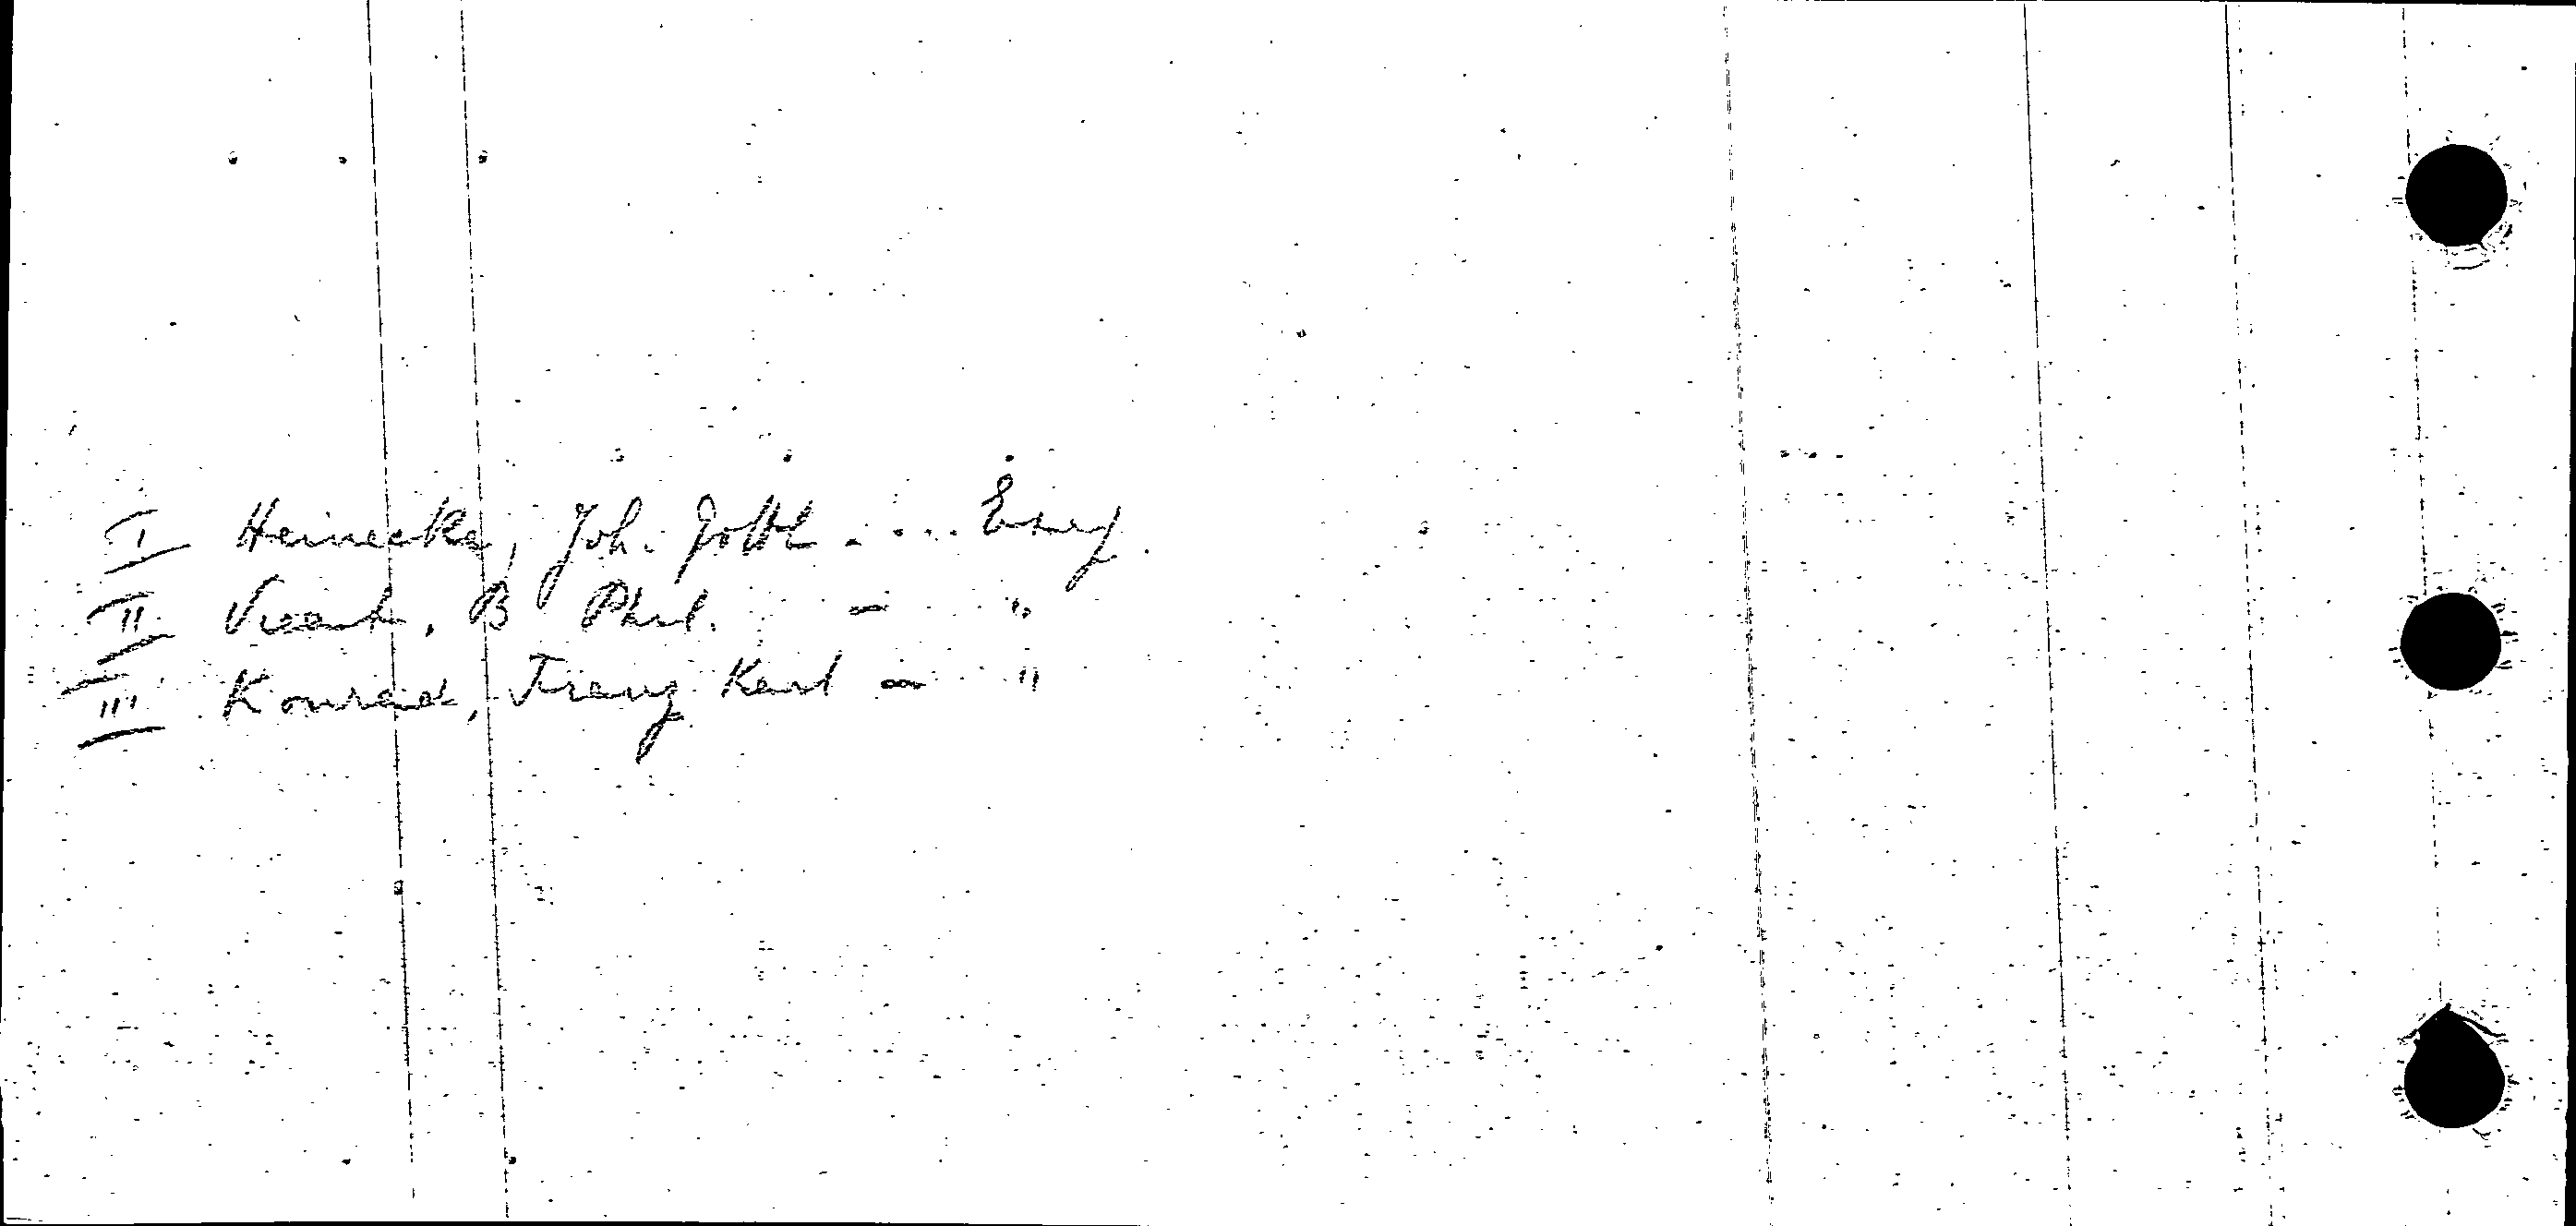 I Heinecke, Joh. Gottl. ....
II B Phil. - "
III Konrad, Franz Karl - "